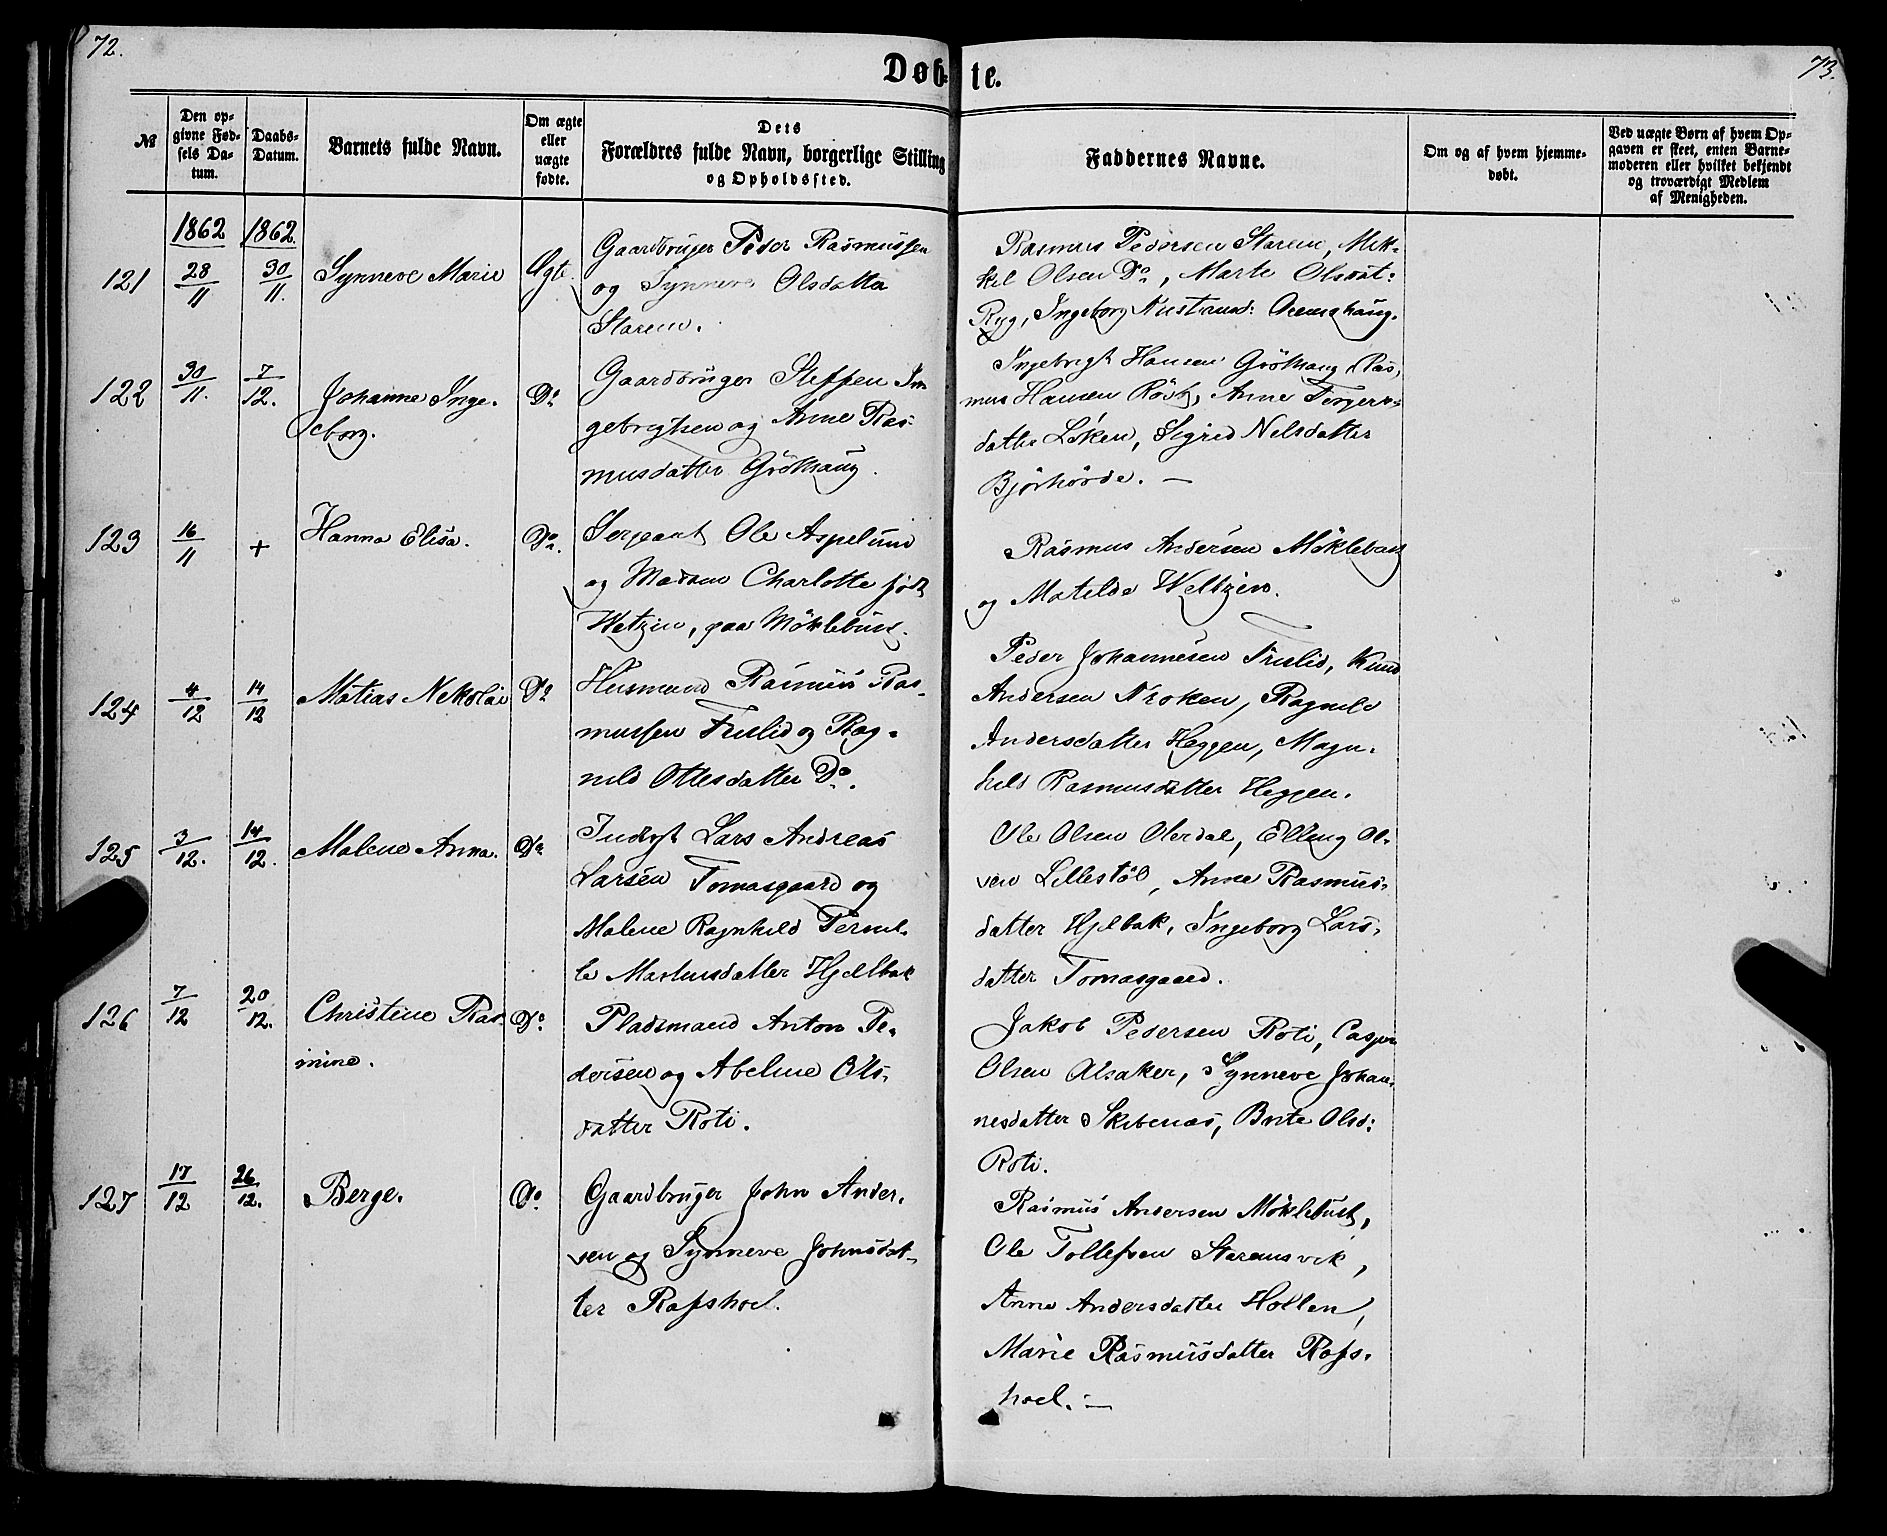 72.
73.
Døbte.
No
Den op-
givne Fød-
sels Da-
tum.
Daabs-
Datum.
Barnets fulde Navn.
Om ægte
eller
uægte
fødte.
Dets
Forældres fulde Navn, borgerlige Stilling
og Opholdssted.
Faddernes Navne.
Om og af hvem hjemme-
døbt.
Ved uægte Børn af hvem Op-
gaven er skeet, enten Barne-
moderen eller hvilket bekjendt
og troværdigt Medlem
af Menigheden.
1862 1862
121
28/11
30/11.
Synneve Marie
Ægte
Gaardbruger Peder Rasmussen
og Synneve Olsdatter
Starem.
Rasmus Pedersen Starem, Mik-
kel Olsen Do, Marte Olsdat:
Ryg, Ingeborg
122
30/11.
7/12.
Johanne Inge-
borg.
Do
Gaardbruger Steffen In
gebrigtsen og Anne Ras-
musdatter Gröthaug.
Ingebrigt Hansen Gröthaug, Ras-
mus Hansen Anne
datter Löken, Sigrid Nilsdatter
Björhövde. —
123
16/11
+
Hanna Elisa.
Do.
Sergeant Ole Aspelund
og Madam Charlotte födt
Wetzien, paa Möklebust.
Rasmus Andersen Möklebust
og Matilde Weltzien.
124
4/12
14/12
Matias Nikolai
Do
Husmand Rasmus Ras-
mussen Frislid og Rag-
nild Ottesdatter Do.
Peder Johannesen Frislid, Knud
Andersen Kroken, Ragnild
Andersdatter Heggen, Magn-
hild Rasmusdatter Heggen.
125
3/12.
14/12.
Malene Anna.
Do
Inds: Lars Andreas
Larsen Tomasgaard og
Malene Ragnhild Pernil-
le Martinusdatter Hjelbak
Ole Olsen Olerdal, Elling Ol-
sen Lillestöl, Anne Rasmus-
datter Hjelbak, Ingeborg Lars-
datter Tomasgaard.
126
7/12
20/12.
Christine Ras-
mine.
Do.
Pladsmand Anton Pe-
dersen og Abeline Ols-
datter Roti.
Jakob Pedersen Roti, Casper
Olsen Alsaker, Synneve Johan-
nesdatter Skibenæs, Brite Olsd:
Roti.
127
17/12
26/12.
Berge.
Do.
Gaardbruger John Ander-
sen og Synneve Johnsdat-
ter Rafshoel.
Rasmus Andersen Möklebust,
Ole Tollefsen Staremsvik,
Anne Andersdatter Hollen,
Marie Rasmusdatter Rafs-
hoel. —